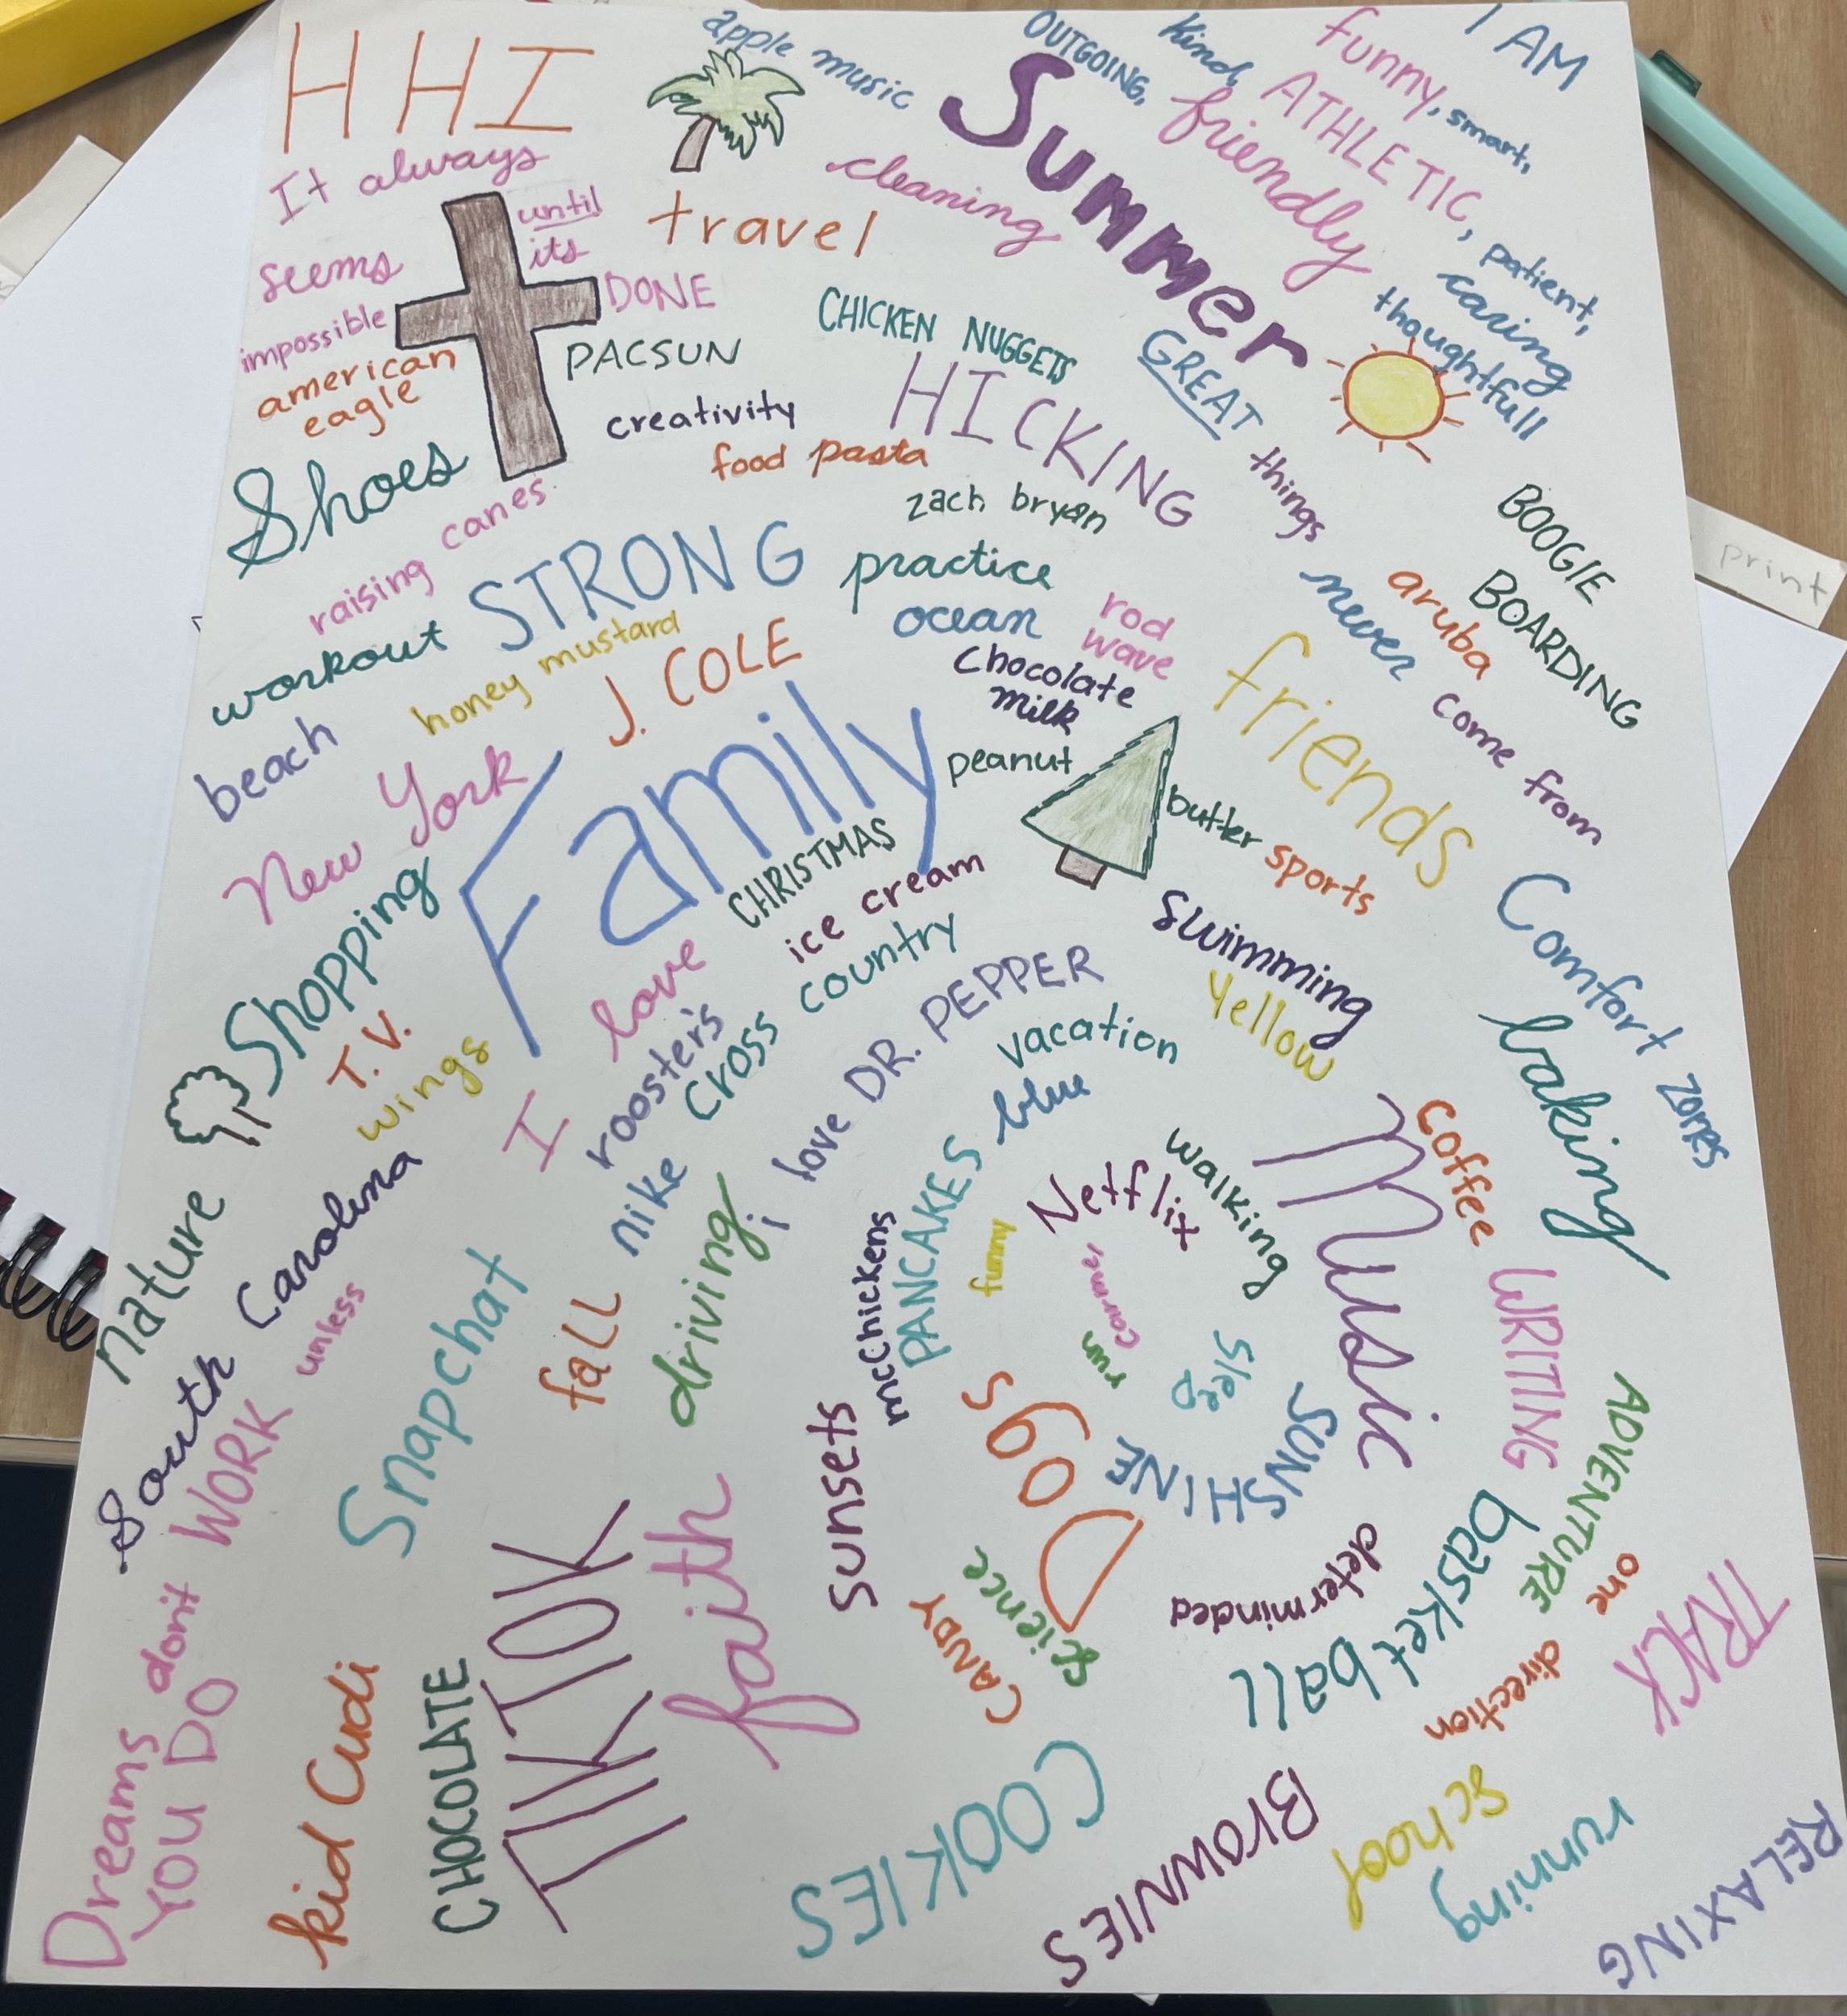 HHI
apple music
OUTGOING,
kind,
funny,
I AM
smart,
ATHLETIC,
friendly
Summer
patient,
caring
thoughtfull
It always
seems
impossible
until
its
DONE
travel
cleaning
american
eagle
PACSUN
CHICKEN NUGGETS
GREAT
things
never
come from
Comfort zones
creativity
HICKING
food pasta
zach bryan
Shoes
raising canes
STRONG
practice
BOOGIE
BOARDING
aruba
workout
honey mustard
ocean
rod
wave
J. COLE
Chocolate
milk
friends
beach
New York
Family
peanut
butter
sports
CHRISTMAS
ice cream
Swimming
Shopping
T.V.
I love
cross country
Yellow
baking
wings
rooster's
i love DR. PEPPER
vacation
blue
coffee
nature
South Carolina
nike
driving
PANCAKES
mcChickens
Netflix
walking
Music
funny
carmel
run
sleep
SUNSHINE
WRITING
ADVENTURE
Dreams don't
WORK unless
YOU DO
Snapchat
fall
sunsets
Dogs
determinded
basketball
one
direction
TRACK
TIKTOK
faith
science
CANDY
kid Cudi
CHOCOLATE
COOKIES
BROWNIES
school
running
RELAXING
print